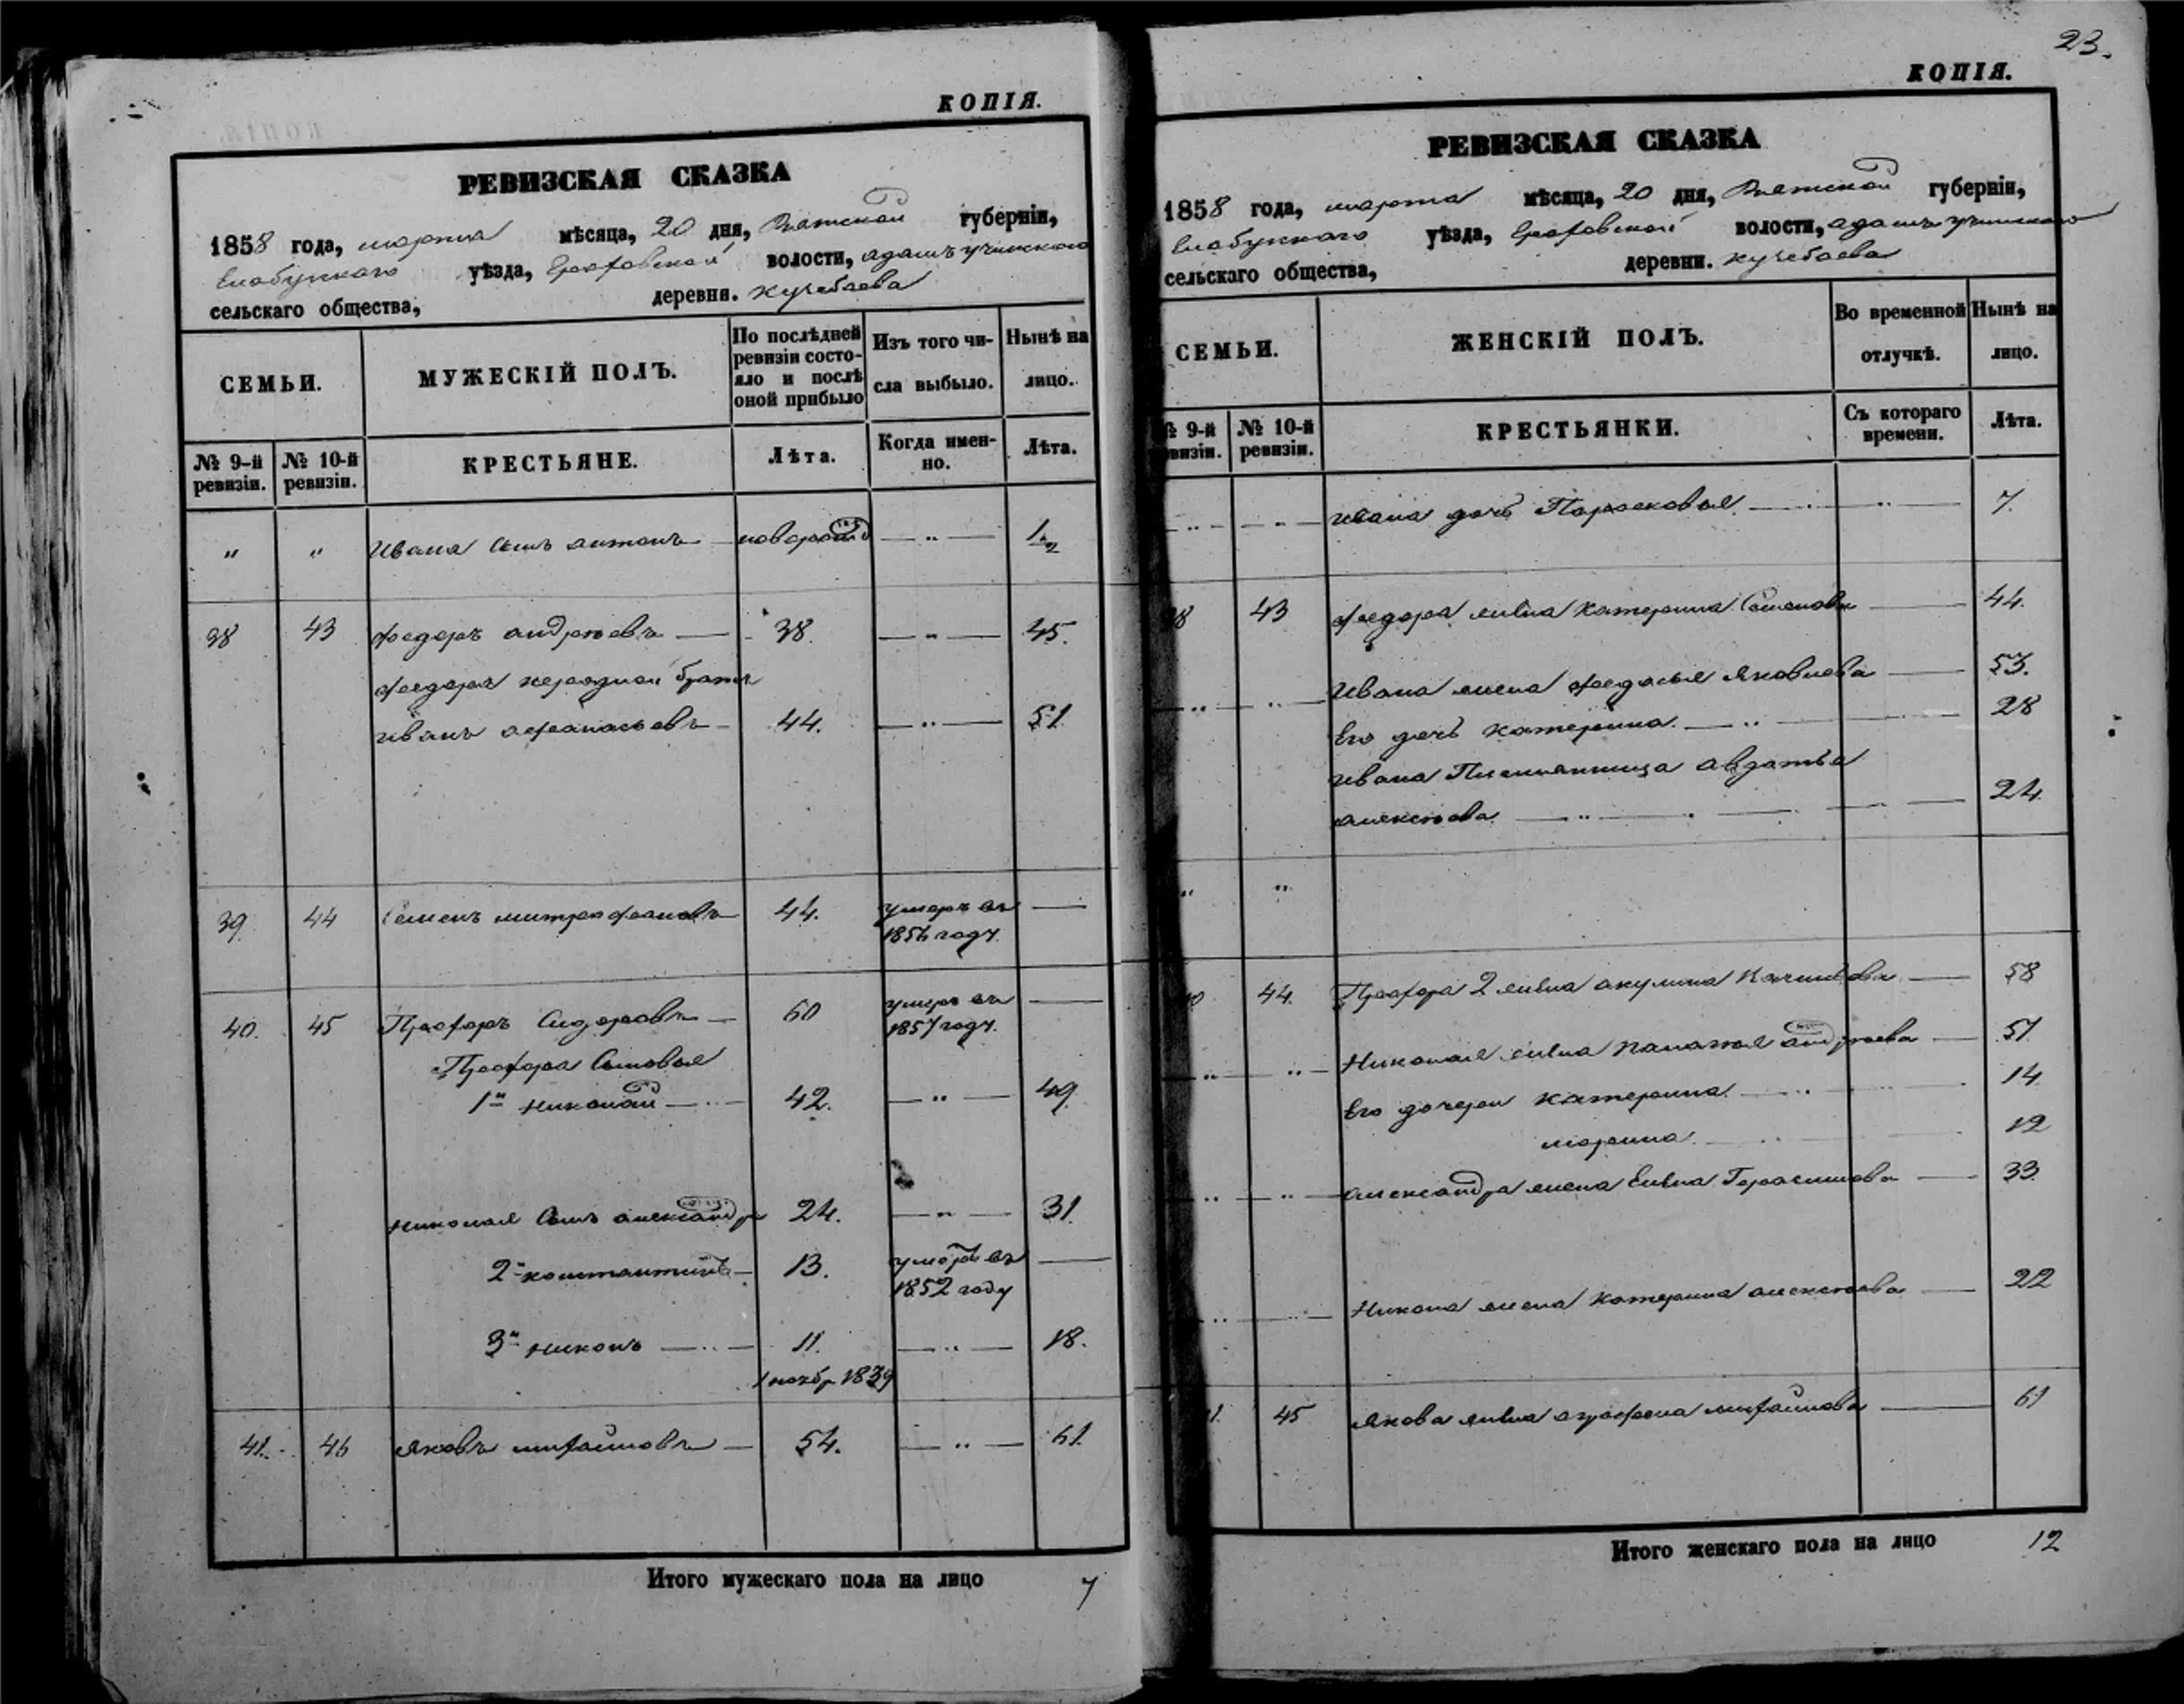 КОПІЯ.
РЕВИЗСКАЯ СКАЗКА
1858 года, марта мѣсяца, 20 дня, Вятской губерніи,
Елабужскаго уѣзда, Граховской волости, адамъ учинскаго
сельскаго общества, деревни. кучебаева
СЕМЬИ.
МУЖЕСКІЙ ПОЛЪ.
По послѣдней ревизіи состояло и послѣ оной прибыло
Изъ того числа выбыло.
Нынѣ на лицо.
№ 9-й ревизіи.
№ 10-й ревизіи.
КРЕСТЬЯНЕ.
Лѣта.
Когда именно.
Лѣта.
" " Ивана Сынъ антонъ — новорожд — " — 1/2
38 43 федоръ андреевъ — 38. — " — 45.
федора брат
иванъ афанасьевъ — 44. — " — 51.
39. 44 Семенъ митрофановъ 44. умеръ въ —
1856 году.
40. 45 Прохоръ Сидоровъ — 60 умеръ въ —
1857 году.
Прохора Сыновья
1й Николай — 42. — " — 49.
Николая Сынъ александр 24. — " — 31.
2й константинъ — 13. умеръ въ —
1852 году
3й никонъ — 11. — " — 18.
1 ноябр 1839
41. 46 яковъ михайловъ — 54. — " — 61.
Итого мужескаго пола на лицо 7
23.
КОПІЯ.
РЕВИЗСКАЯ СКАЗКА
1858 года, марта мѣсяца, 20 дня, Вятской губерніи,
Елабужскаго уѣзда, Граховской волости, адамъ учинскаго
сельскаго общества, деревни. кучебаева
СЕМЬИ.
ЖЕНСКІЙ ПОЛЪ.
Во временной отлучкѣ.
Нынѣ на лицо.
№ 9-й ревизіи.
№ 10-й ревизіи.
КРЕСТЬЯНКИ.
Съ котораго времени.
Лѣта.
Ивана дочь Парасковья — " — 7.
38 43 федора жена Катерина Семенова — 44.
" " Ивана жена федосья яковлева — 53.
Его дочь катерина. — " — 28
Ивана Племянница авдотья
алексеева — " — 24.
" "
40 44. Прохора 2 жена акулина — 58
" " Николая жена палагея андреева — 51
Его дочери катерина — 14
марина. — 12
" " александра жена Елена Герасимова — 33.
" " Никона жена катерина алексеева — 22
41. 45 якова жена аграфена михайлова — 61
Итого женскаго пола на лицо 12